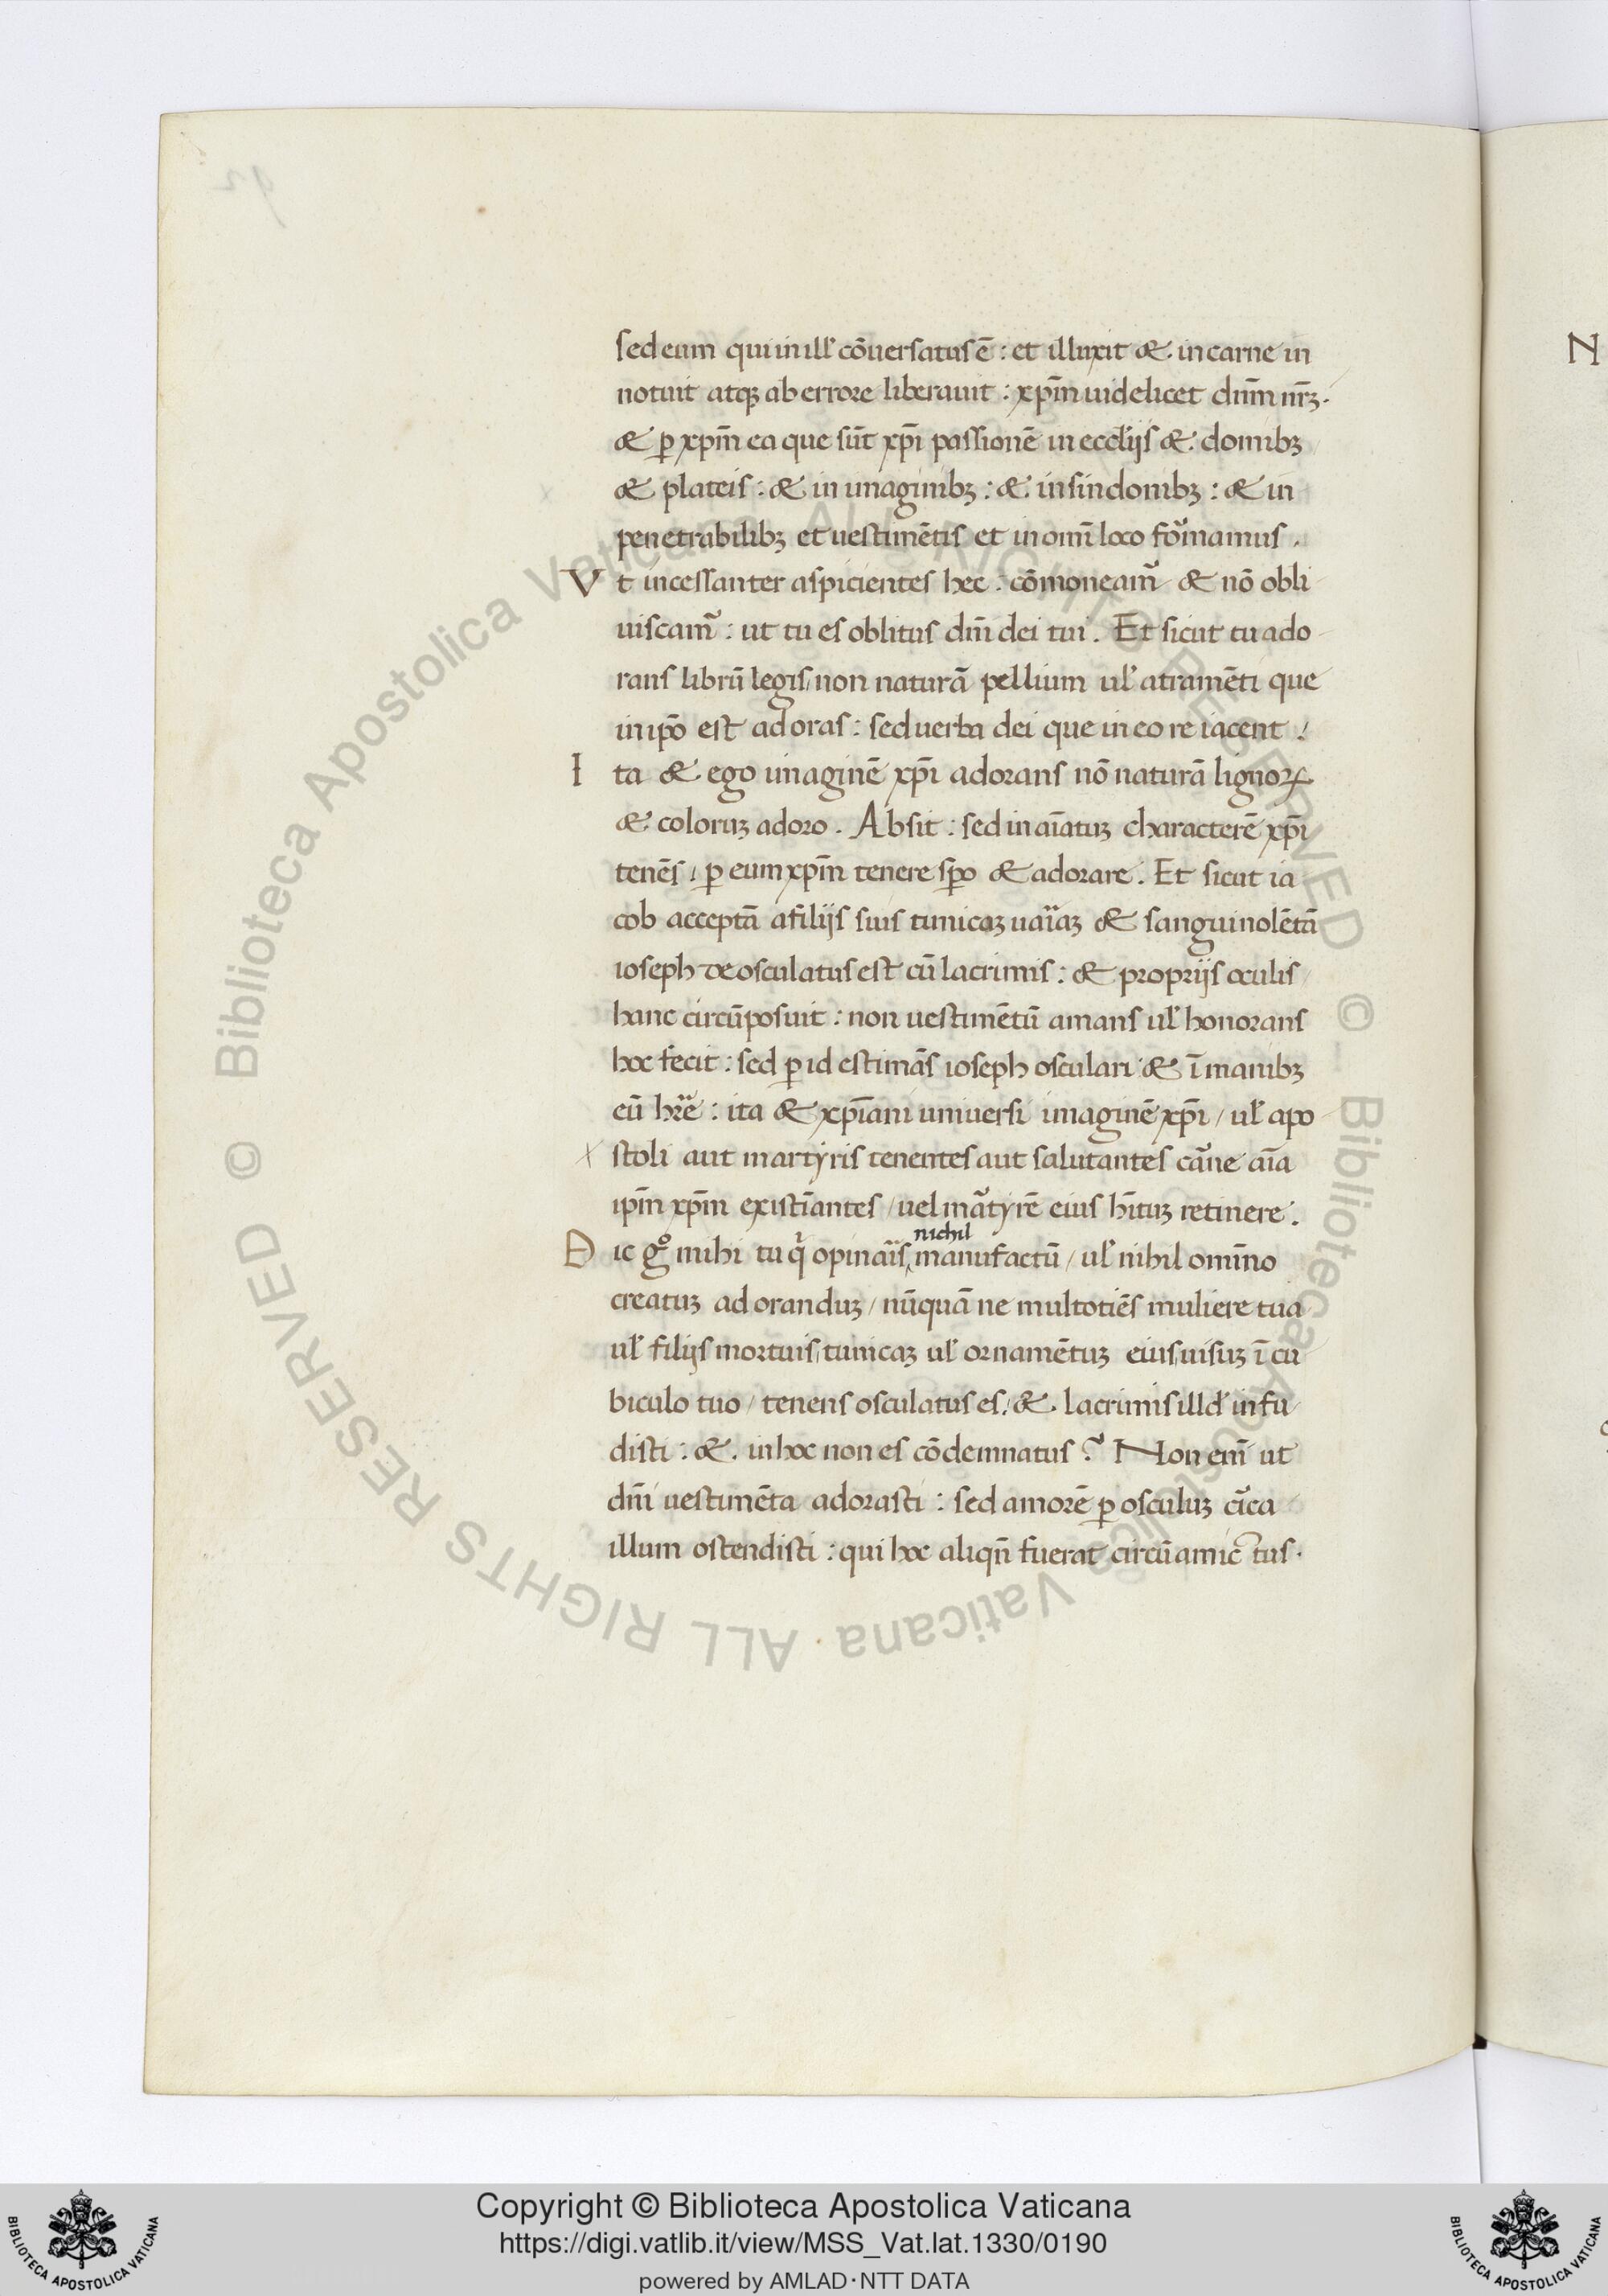 sed eum qui in ill' cōuersatus ē : et illuxit & in carne in
notuit atqꝫ ab errore liberauit : xp̄m uidelicet dn̄m nr̄ꝫ.
& ꝑ xp̄m ea que sūt xp̄i passionē in ecclijs & domibꝫ
& plateis : & in imaginibꝫ : & in sindonibꝫ : & in
penetrabilibꝫ et uestimētis et in om̄i loco formamus .
Vt incessanter aspicientes hec : cōmoneam̃ & nō obli
uiscam̃ : ut tu es oblitus dn̄i dei tui . Et sicut tu ado
rans librū legis, non naturā pellium ul' atramēti que
in ip̄o est adoras : sed uerba dei que in eo re iacent .
Ita & ego imaginē xp̄i adorans nō naturā lignoꝝ
& coloruꝫ adoro . Absit : sed in aīatuꝫ characterē xp̄i
tenēs, ꝑ eum xp̄m tenere sp̄o & adorare . Et sicut ia
cob acceptā a filijs suis tunicaꝫ uaĩaꝫ & sanguinolētā
ioseph deosculatus est cū lacrimis : & proprijs oculis
hanc circūposuit : non uestimētū amans ul' honorans
hoc fecit : sed ꝑ id estimās ioseph osculari & ī manibꝫ
eū hr̃e : ita & xp̄iani uniuersi imaginē xp̄i / ul' apo
stoli aut martyris tenentes aut salutantes cãne aīa
ip̄m xp̄m existīantes / uel mãtyrē eius hītuꝫ retinere .
nichil
Dic gº mihi tu qͥ opinaĩs, manufactū / ul' nihil omīno
creatuꝫ adoranduꝫ / nūquā ne multotiēs muliere tua
ul' filijs mortuis, tunicaꝫ ul' ornamētuꝫ eius, uisuꝫ ī cu
biculo tuo / tenens osculatus es, & lacrimis illd' infu
disti : & in hoc non es cōdemnatus ? Non enī ut
dn̄i uestimēta adorasti : sed amorē ꝑ osculuꝫ cĩca
illum ostendisti : qui hoc aliqn̄ fuerat circūamictus .
Copyright © Biblioteca Apostolica Vaticana
https://digi.vatlib.it/view/MSS_Vat.lat.1330/0190
powered by AMLAD·NTT DATA
BIBLIOTECA APOSTOLICA VATICANA
BIBLIOTECA APOSTOLICA VATICANA
© Biblioteca Apostolica Vaticana ALL RIGHTS RESERVED © Biblioteca Apostolica Vaticana ALL RIGHTS RESERVED
N